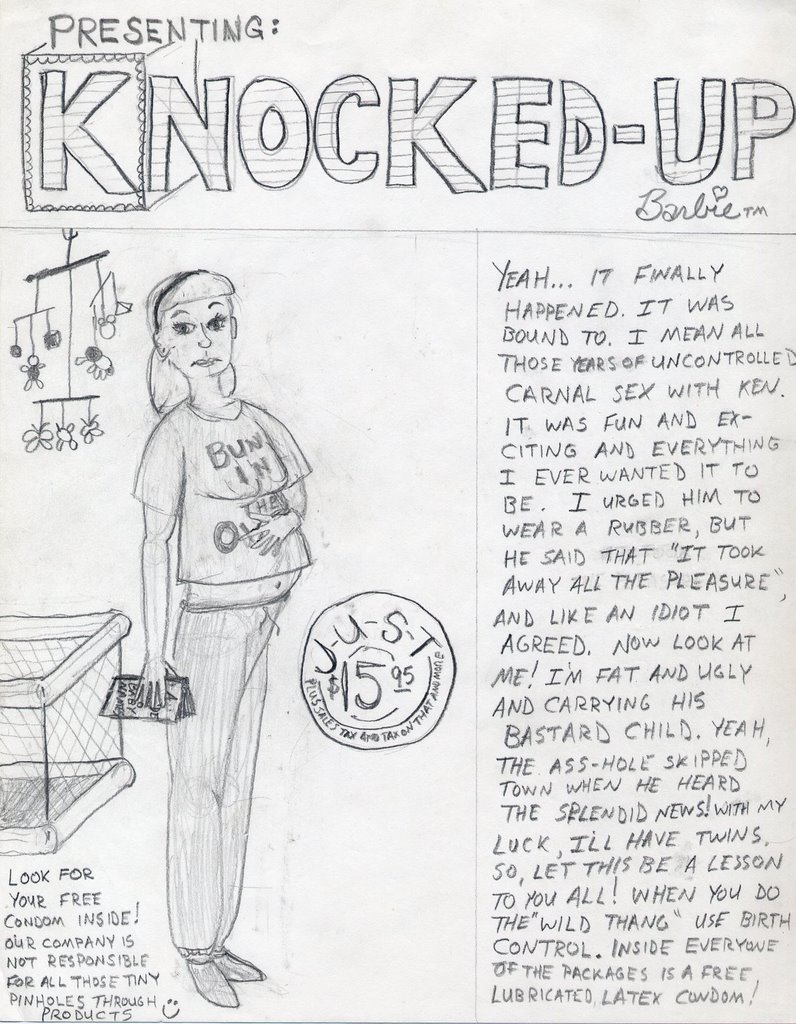 PRESENTING:
KNOCKED-UP
Barbie TM
YEAH... IT FINALLY
HAPPENED. IT WAS
BOUND TO. I MEAN ALL
THOSE YEARS OF UNCONTROLLED
CARNAL SEX WITH KEN.
IT WAS FUN AND EX-
CITING AND EVERYTHING
I EVER WANTED IT TO
BE. I URGED HIM TO
WEAR A RUBBER, BUT
HE SAID THAT "IT TOOK
AWAY ALL THE PLEASURE",
AND LIKE AN IDIOT I
AGREED. NOW LOOK AT
ME! I'M FAT AND UGLY
AND CARRYING HIS
BASTARD CHILD. YEAH,
THE ASS-HOLE SKIPPED
TOWN WHEN HE HEARD
THE SPLENDID NEWS! WITH MY
LUCK, I'LL HAVE TWINS.
SO, LET THIS BE A LESSON
TO YOU ALL! WHEN YOU DO
THE "WILD THANG" USE BIRTH
CONTROL. INSIDE EVERYONE
OF THE PACKAGES IS A FREE,
LUBRICATED, LATEX CONDOM!
BUN
IN
THE
J-U-S-T
$15.95
PLUS SALES TAX AND TAX ON THAT AND MORE
BABY
LOOK FOR
YOUR FREE
CONDOM INSIDE!
OUR COMPANY IS
NOT RESPONSIBLE
FOR ALL THOSE TINY
PINHOLES THROUGH
PRODUCTS